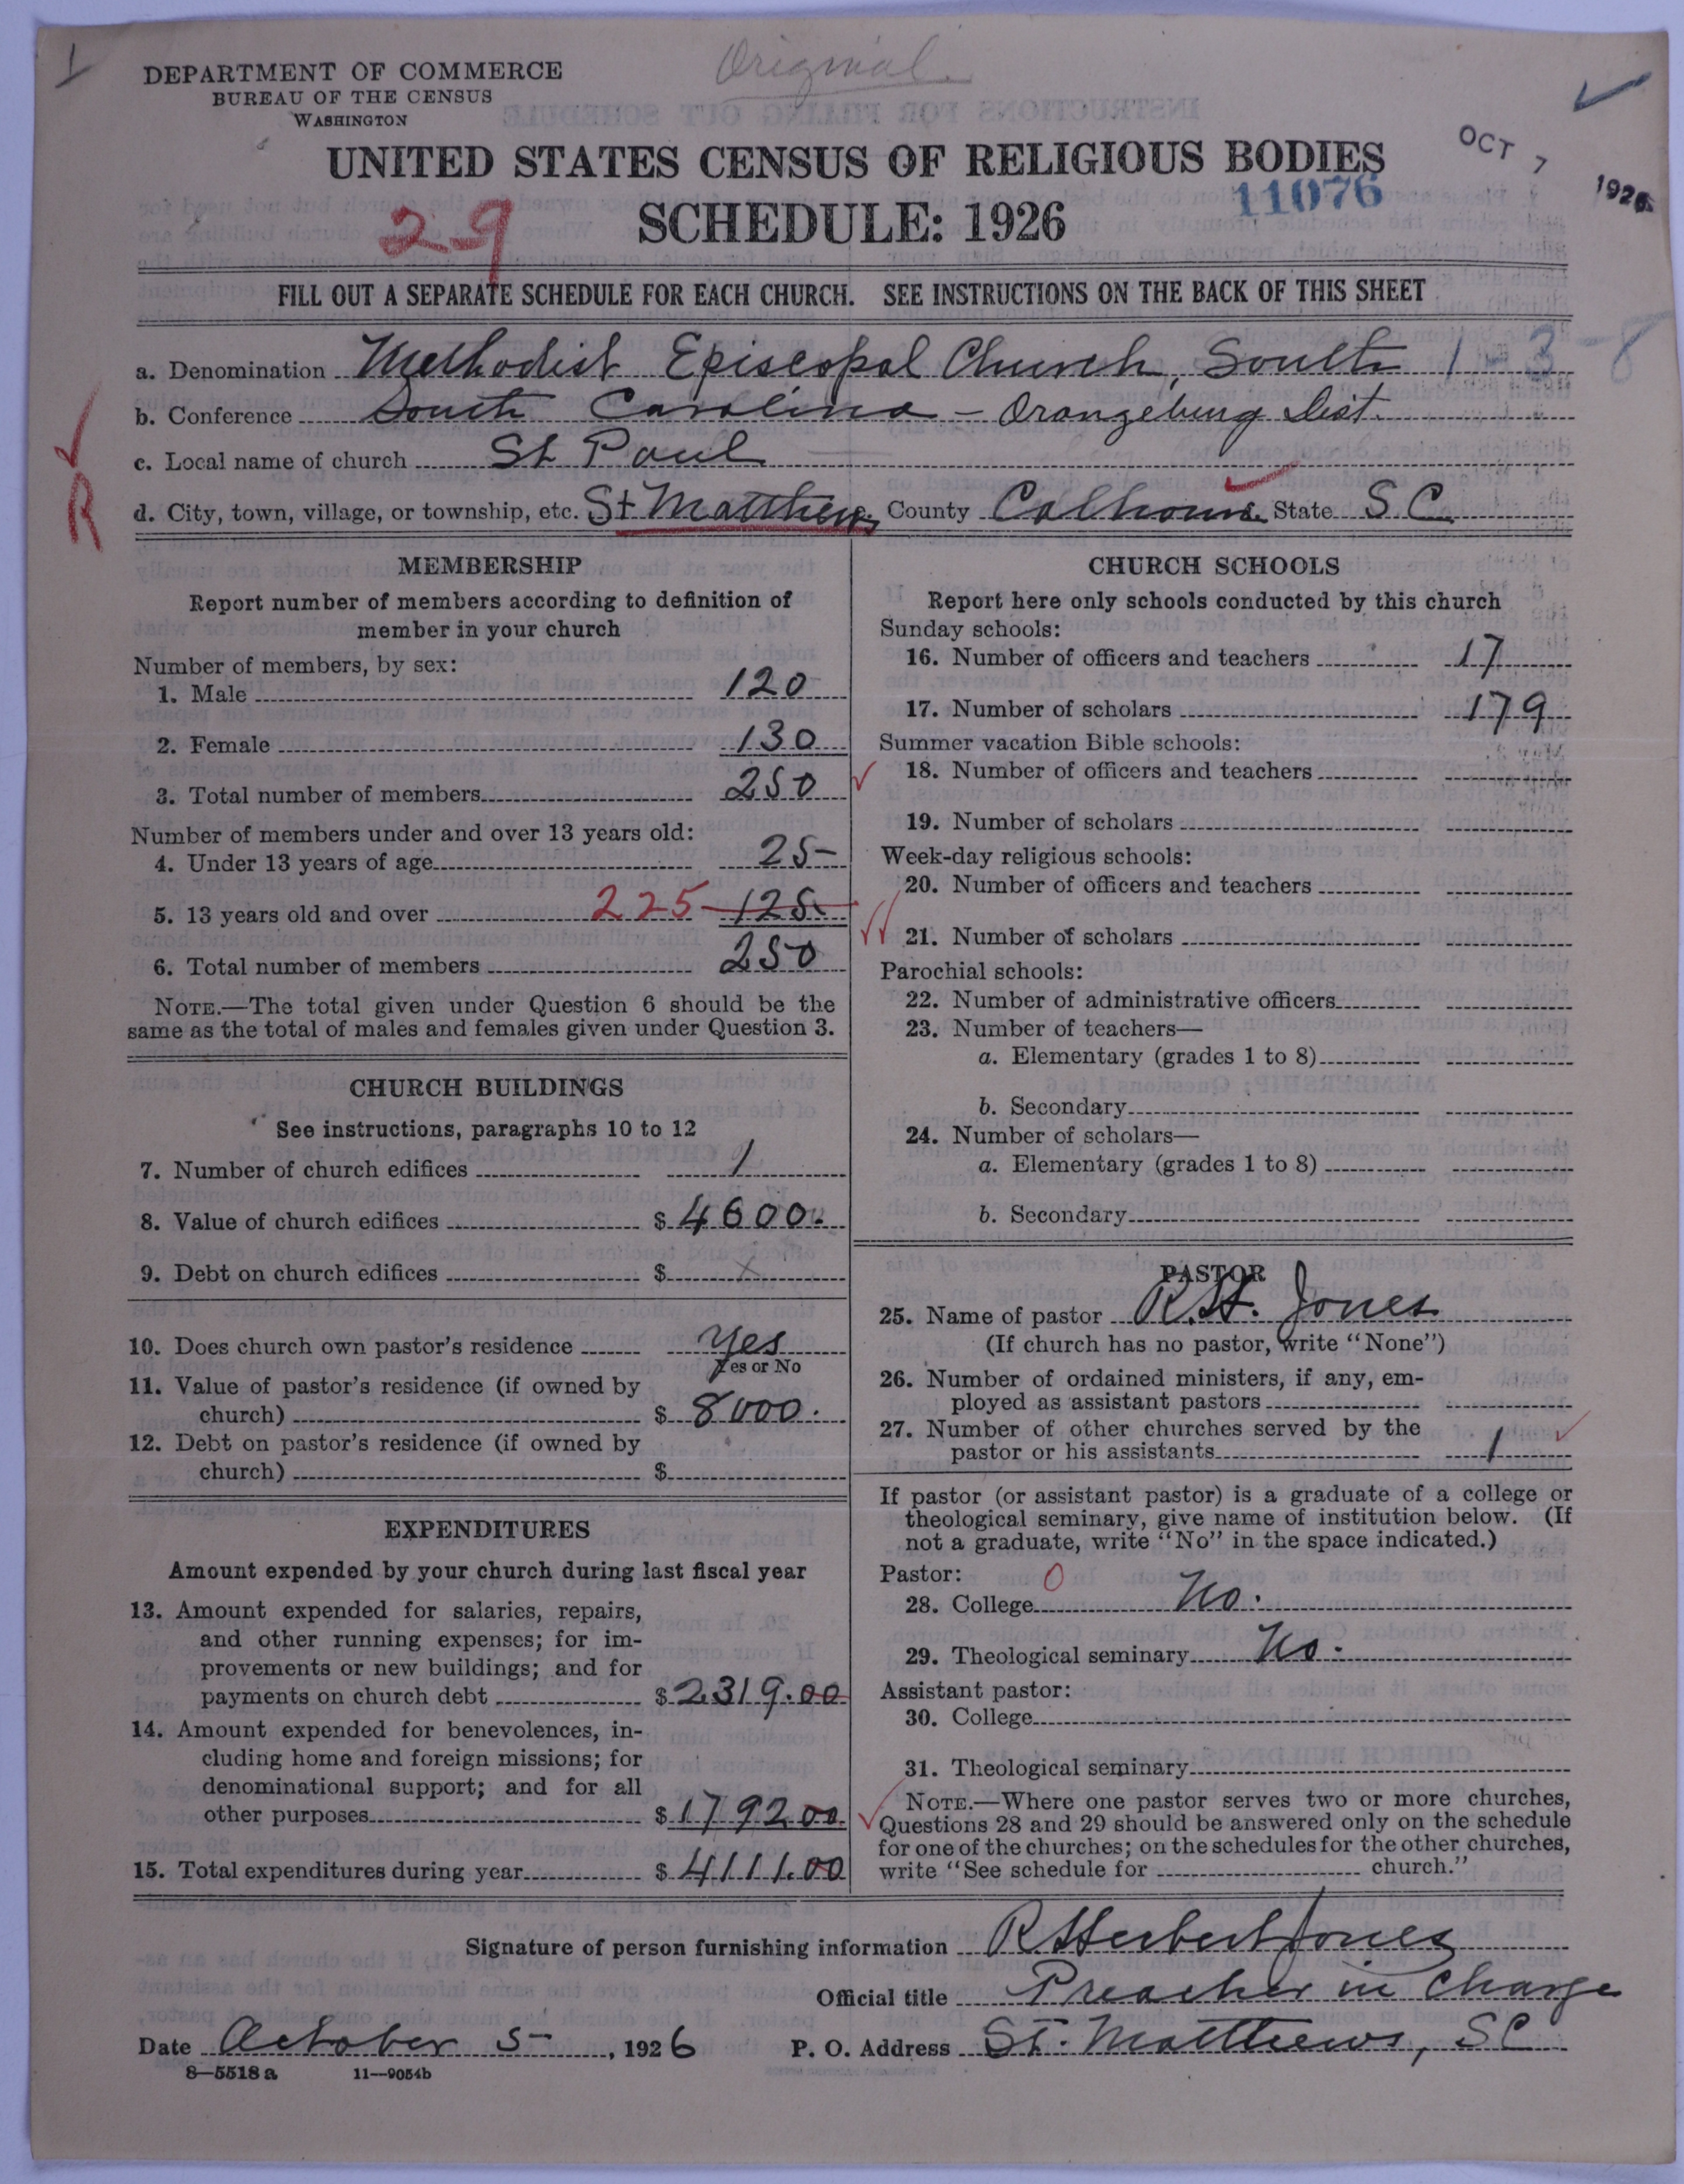 1
Original
DEPARTMENT OF COMMERCE
BUREAU OF THE CENSUS
WASHINGTON
UNITED STATES CENSUS OF RELIGIOUS BODIES
OCT 7 1926
11076
29
SCHEDULE: 1926
FILL OUT A SEPARATE SCHEDULE FOR EACH CHURCH. SEE INSTRUCTIONS ON THE BACK OF THIS SHEET
a. Denomination Methodist Episcopal Church, South 1-3-8
b. Conference South Carolina - Orangeburg Dist.
c. Local name of church St Paul
R
d. City, town, village, or township, etc. St Matthews County Calhoun State S.C.
MEMBERSHIP
Report number of members according to definition of
member in your church
Number of members, by sex:
1. Male 120
2. Female 130
3. Total number of members 250
Number of members under and over 13 years old:
4. Under 13 years of age 25-
5. 13 years old and over 225 125
6. Total number of members 250
NOTE.—The total given under Question 6 should be the
same as the total of males and females given under Question 3.
CHURCH BUILDINGS
See instructions, paragraphs 10 to 12
7. Number of church edifices 1
8. Value of church edifices $ 4600.
9. Debt on church edifices $ x
10. Does church own pastor's residence Yes
Yes or No
11. Value of pastor's residence (if owned by
church) $ 8000.
12. Debt on pastor's residence (if owned by
church) $
EXPENDITURES
Amount expended by your church during last fiscal year
13. Amount expended for salaries, repairs,
and other running expenses; for im-
provements or new buildings; and for
payments on church debt $ 2319.00
14. Amount expended for benevolences, in-
cluding home and foreign missions; for
denominational support; and for all
other purposes $ 1792 00
15. Total expenditures during year $ 4111.00
CHURCH SCHOOLS
Report here only schools conducted by this church
Sunday schools:
16. Number of officers and teachers 17
17. Number of scholars 179
Summer vacation Bible schools:
18. Number of officers and teachers
19. Number of scholars
Week-day religious schools:
20. Number of officers and teachers
21. Number of scholars
Parochial schools:
22. Number of administrative officers
23. Number of teachers—
a. Elementary (grades 1 to 8)
b. Secondary
24. Number of scholars—
a. Elementary (grades 1 to 8)
b. Secondary
PASTOR
25. Name of pastor R.H. Jones
(If church has no pastor, write "None")
26. Number of ordained ministers, if any, em-
ployed as assistant pastors
27. Number of other churches served by the
pastor or his assistants 1
If pastor (or assistant pastor) is a graduate of a college or
theological seminary, give name of institution below. (If
not a graduate, write "No" in the space indicated.)
Pastor: 0
28. College No.
29. Theological seminary No.
Assistant pastor:
30. College
31. Theological seminary
NOTE.—Where one pastor serves two or more churches,
Questions 28 and 29 should be answered only on the schedule
for one of the churches; on the schedules for the other churches,
write "See schedule for church."
Signature of person furnishing information R Herbert Jones
Official title Preacher in Charge
Date October 5-, 1926 P. O. Address St. Matthews, SC
8—5518 a 11—9054b